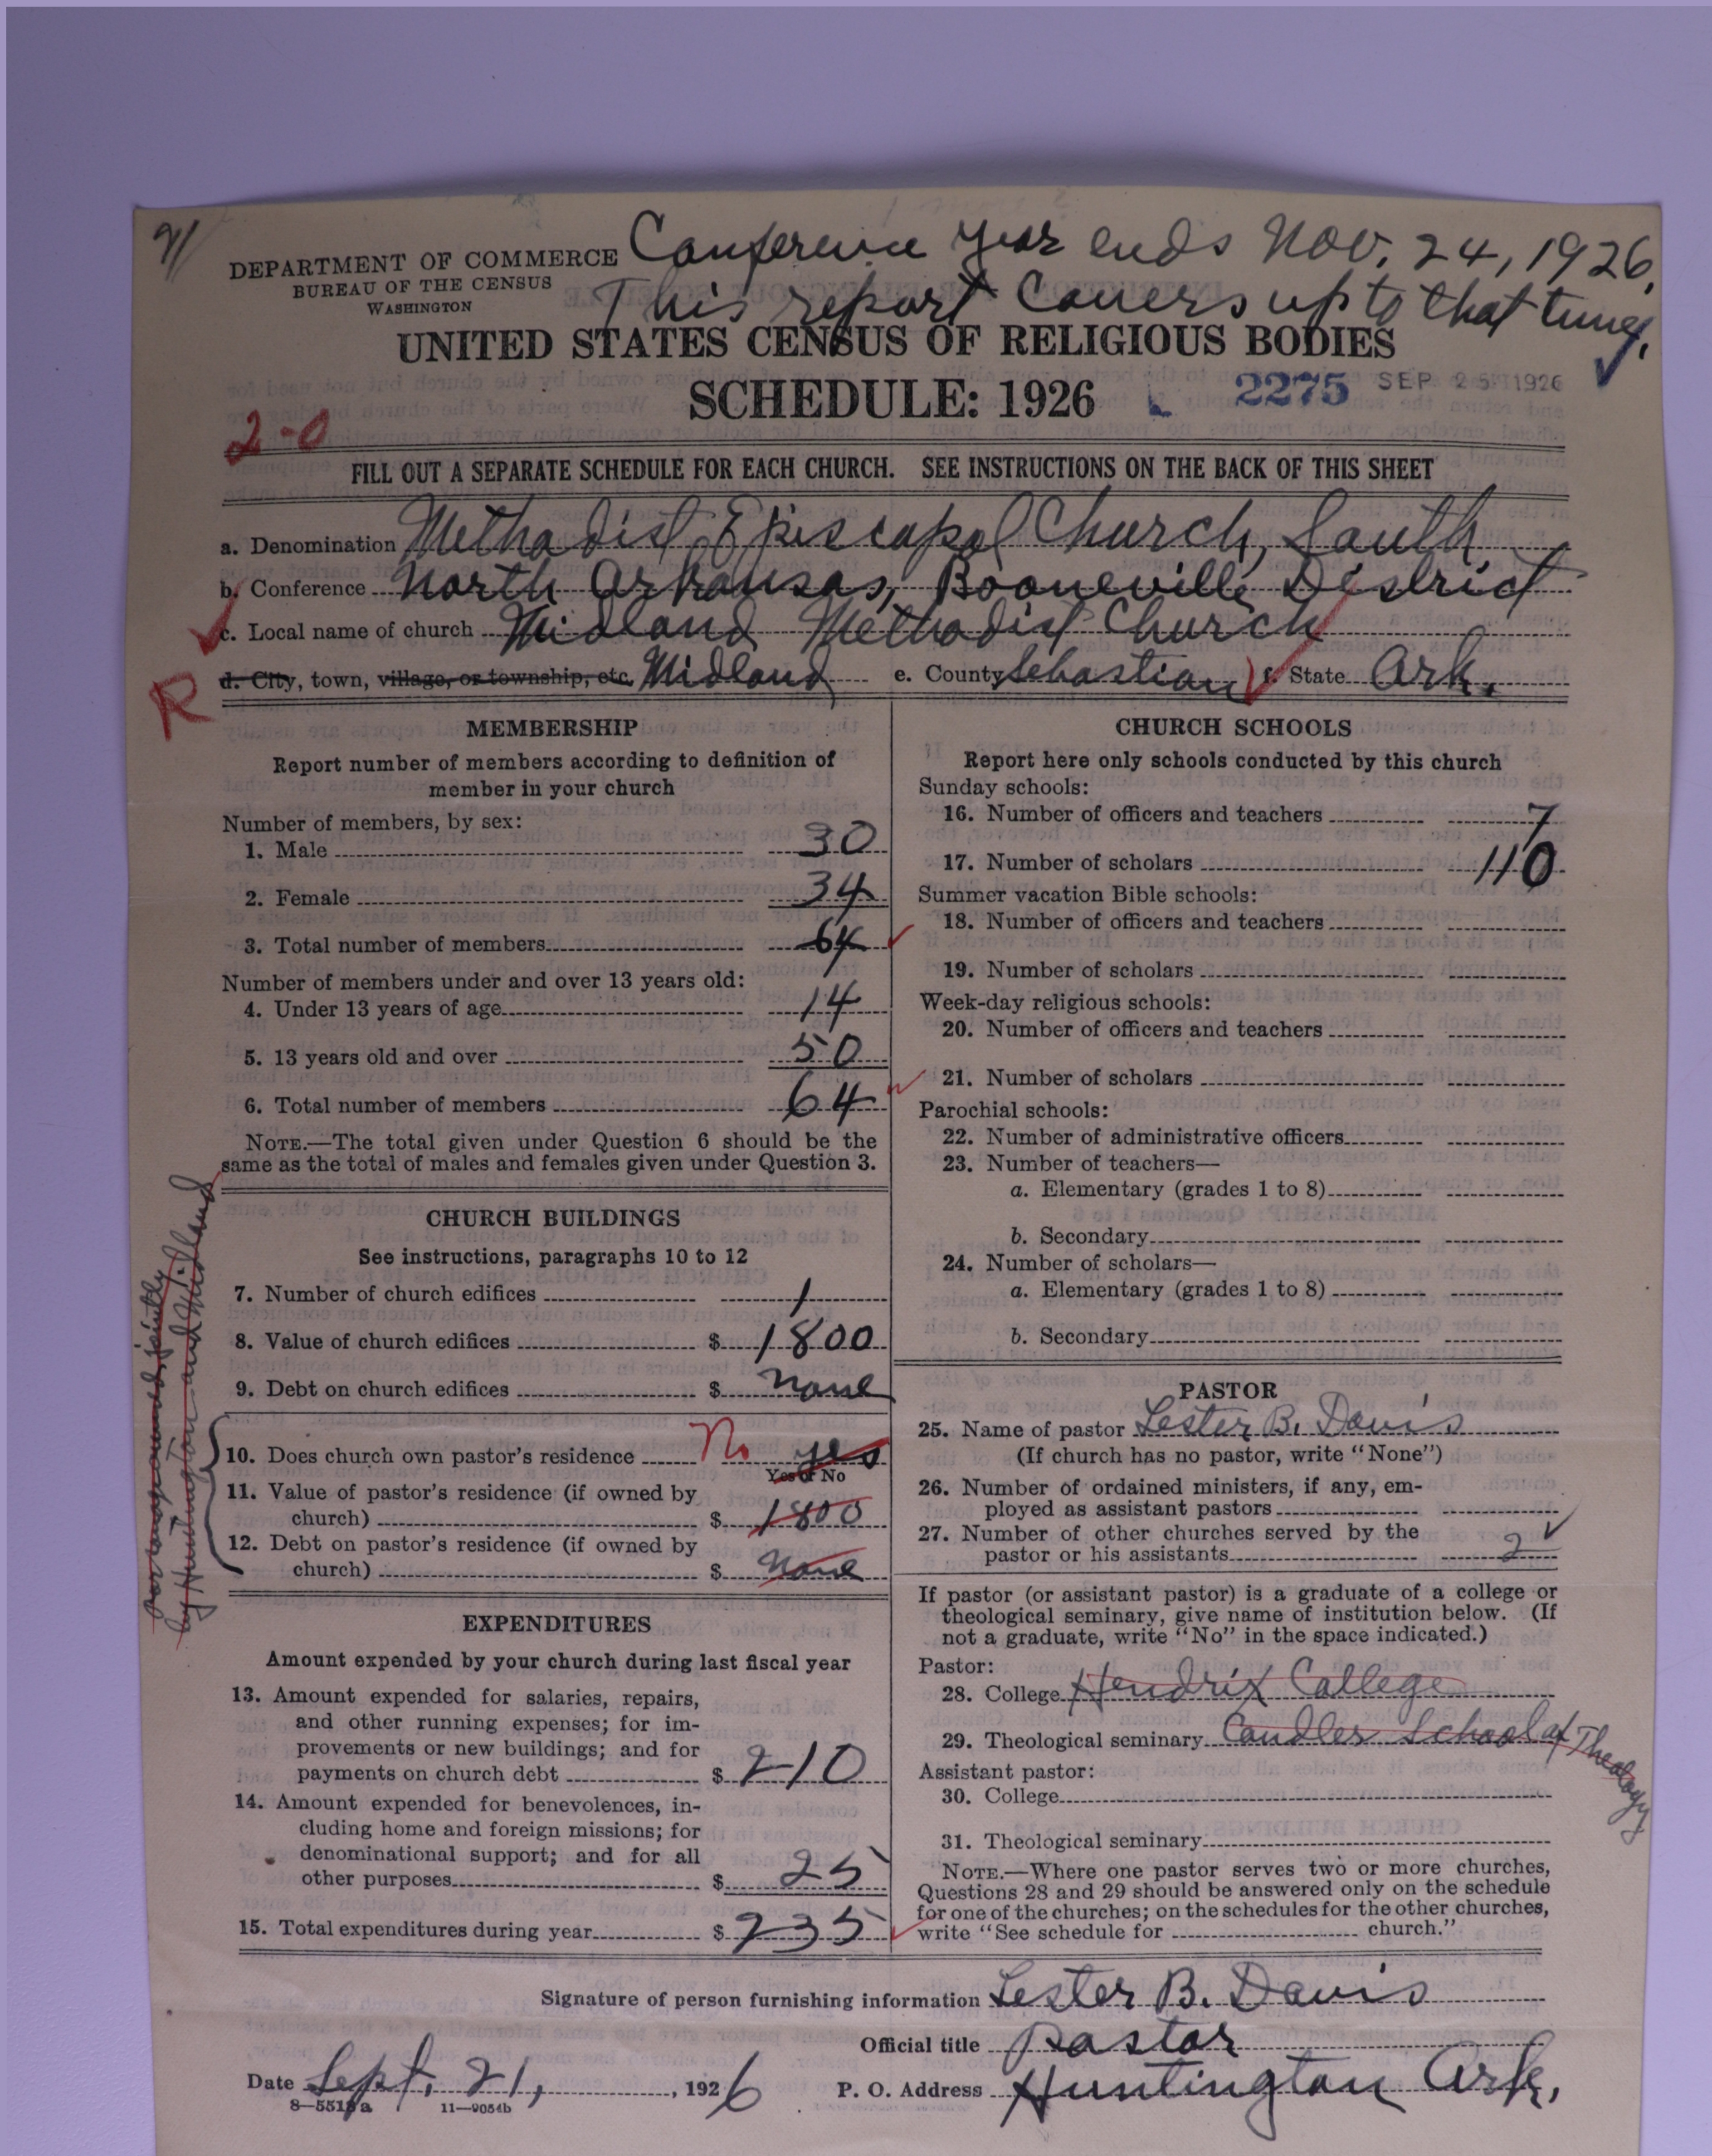 91
Conference year ends Nov. 24, 1926.
This report covers up to that time.
DEPARTMENT OF COMMERCE
BUREAU OF THE CENSUS
WASHINGTON
UNITED STATES CENSUS OF RELIGIOUS BODIES
SCHEDULE: 1926
2275 SEP 25 1926
2-0
FILL OUT A SEPARATE SCHEDULE FOR EACH CHURCH. SEE INSTRUCTIONS ON THE BACK OF THIS SHEET
a. Denomination Methodist Episcopal Church, South
b. Conference North Arkansas, Booneville District
c. Local name of church Midland Methodist Church
R
d. City, town, village, or township, etc. Midland e. County Sebastian f. State Ark.
MEMBERSHIP
Report number of members according to definition of
member in your church
Number of members, by sex:
1. Male 30
2. Female 34
3. Total number of members 64
Number of members under and over 13 years old:
4. Under 13 years of age 14
5. 13 years old and over 50
6. Total number of members 64
NOTE.—The total given under Question 6 should be the
same as the total of males and females given under Question 3.
CHURCH BUILDINGS
See instructions, paragraphs 10 to 12
7. Number of church edifices 1
8. Value of church edifices $ 1800
9. Debt on church edifices $ none
10. Does church own pastor's residence No yes
Yes or No
11. Value of pastor's residence (if owned by
church) $ 1800
12. Debt on pastor's residence (if owned by
church) $ none
parsonage owned jointly
by Huntington and Midland
EXPENDITURES
Amount expended by your church during last fiscal year
13. Amount expended for salaries, repairs,
and other running expenses; for im-
provements or new buildings; and for
payments on church debt $ 210
14. Amount expended for benevolences, in-
cluding home and foreign missions; for
denominational support; and for all
other purposes $ 25
15. Total expenditures during year $ 235
CHURCH SCHOOLS
Report here only schools conducted by this church
Sunday schools:
16. Number of officers and teachers 7
17. Number of scholars 110
Summer vacation Bible schools:
18. Number of officers and teachers
19. Number of scholars
Week-day religious schools:
20. Number of officers and teachers
21. Number of scholars
Parochial schools:
22. Number of administrative officers
23. Number of teachers—
a. Elementary (grades 1 to 8)
b. Secondary
24. Number of scholars—
a. Elementary (grades 1 to 8)
b. Secondary
PASTOR
25. Name of pastor Lester B. Davis
(If church has no pastor, write "None")
26. Number of ordained ministers, if any, em-
ployed as assistant pastors
27. Number of other churches served by the
pastor or his assistants 2
If pastor (or assistant pastor) is a graduate of a college or
theological seminary, give name of institution below. (If
not a graduate, write "No" in the space indicated.)
Pastor:
28. College Hendrix College
29. Theological seminary Candler School of Theology
Assistant pastor:
30. College
31. Theological seminary
NOTE.—Where one pastor serves two or more churches,
Questions 28 and 29 should be answered only on the schedule
for one of the churches; on the schedules for the other churches,
write "See schedule for church."
Signature of person furnishing information Lester B. Davis
Official title Pastor
Date Sept. 21, 1926 P. O. Address Huntington Ark.
8—5518a 11—9054b